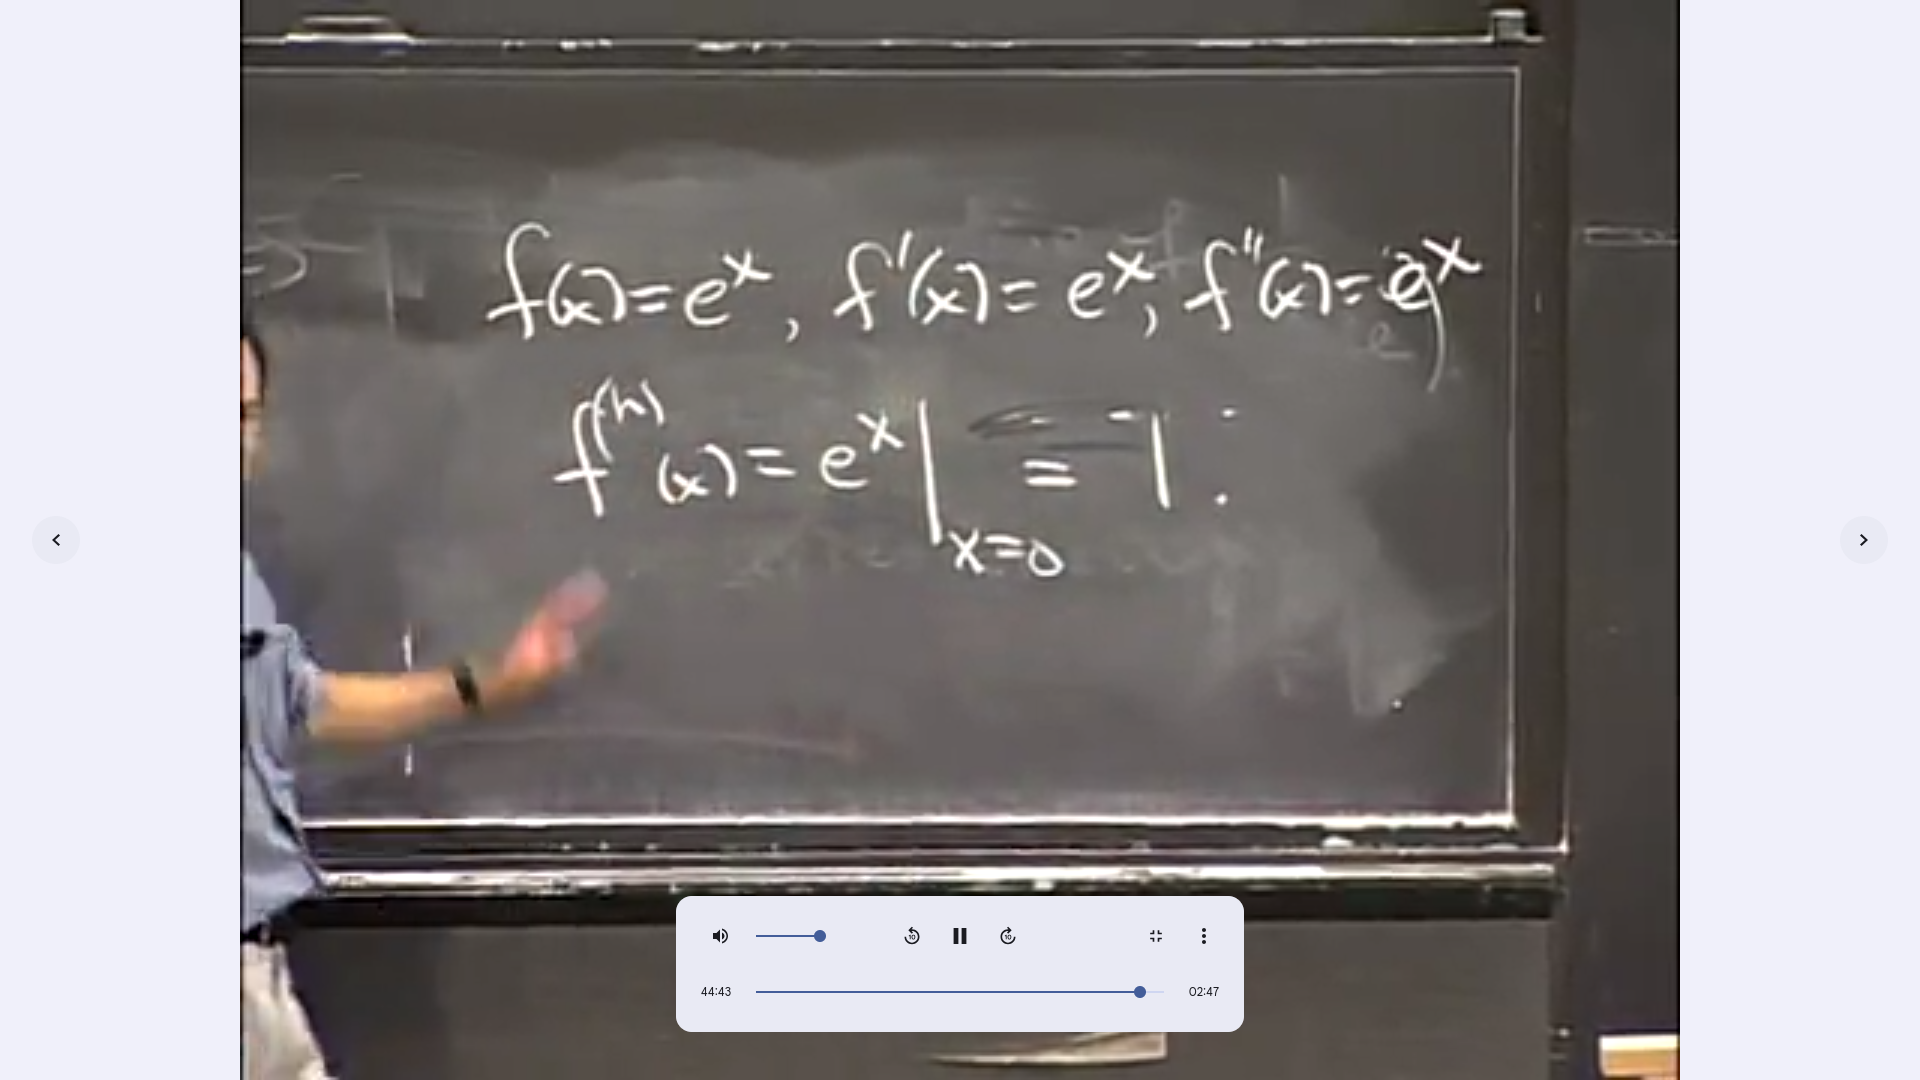 f(x)=e^x, f'(x)=e^x, f''(x)=e^x
f^(n)(x)=e^x|_{x=0} = 1.
10
10
44:43
02:47